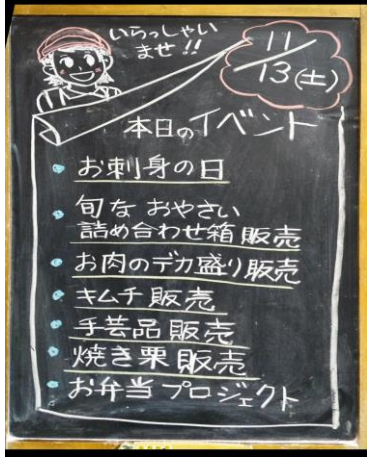 いらっしゃい
ませ!!
11/13(土)
本日のイベント
お刺身の日
旬な おやさい
詰め合わせ箱販売
お肉のデカ盛り販売
キムチ販売
手芸品販売
焼き栗販売
お弁当プロジェクト